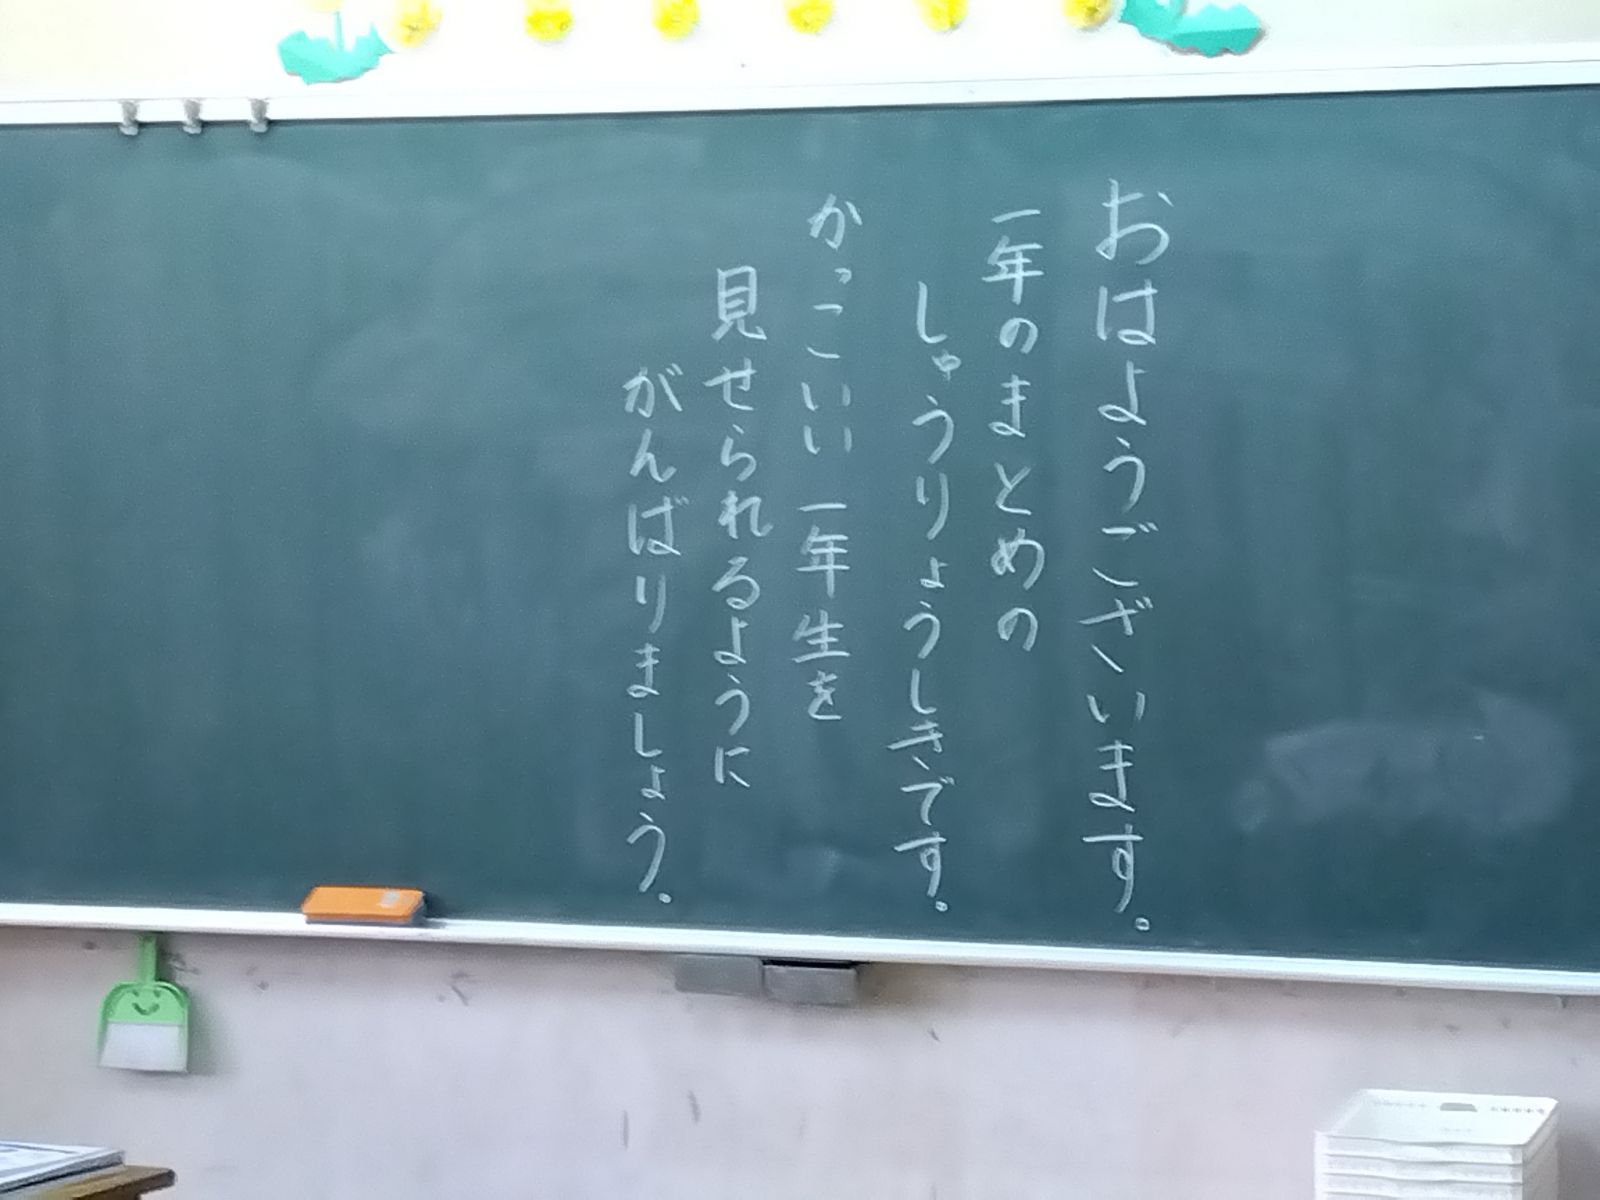 おはようございます。
一年のまとめの
しゅうりょうしきです。
かっこいい一年生を
見せられるように
がんばりましょう。